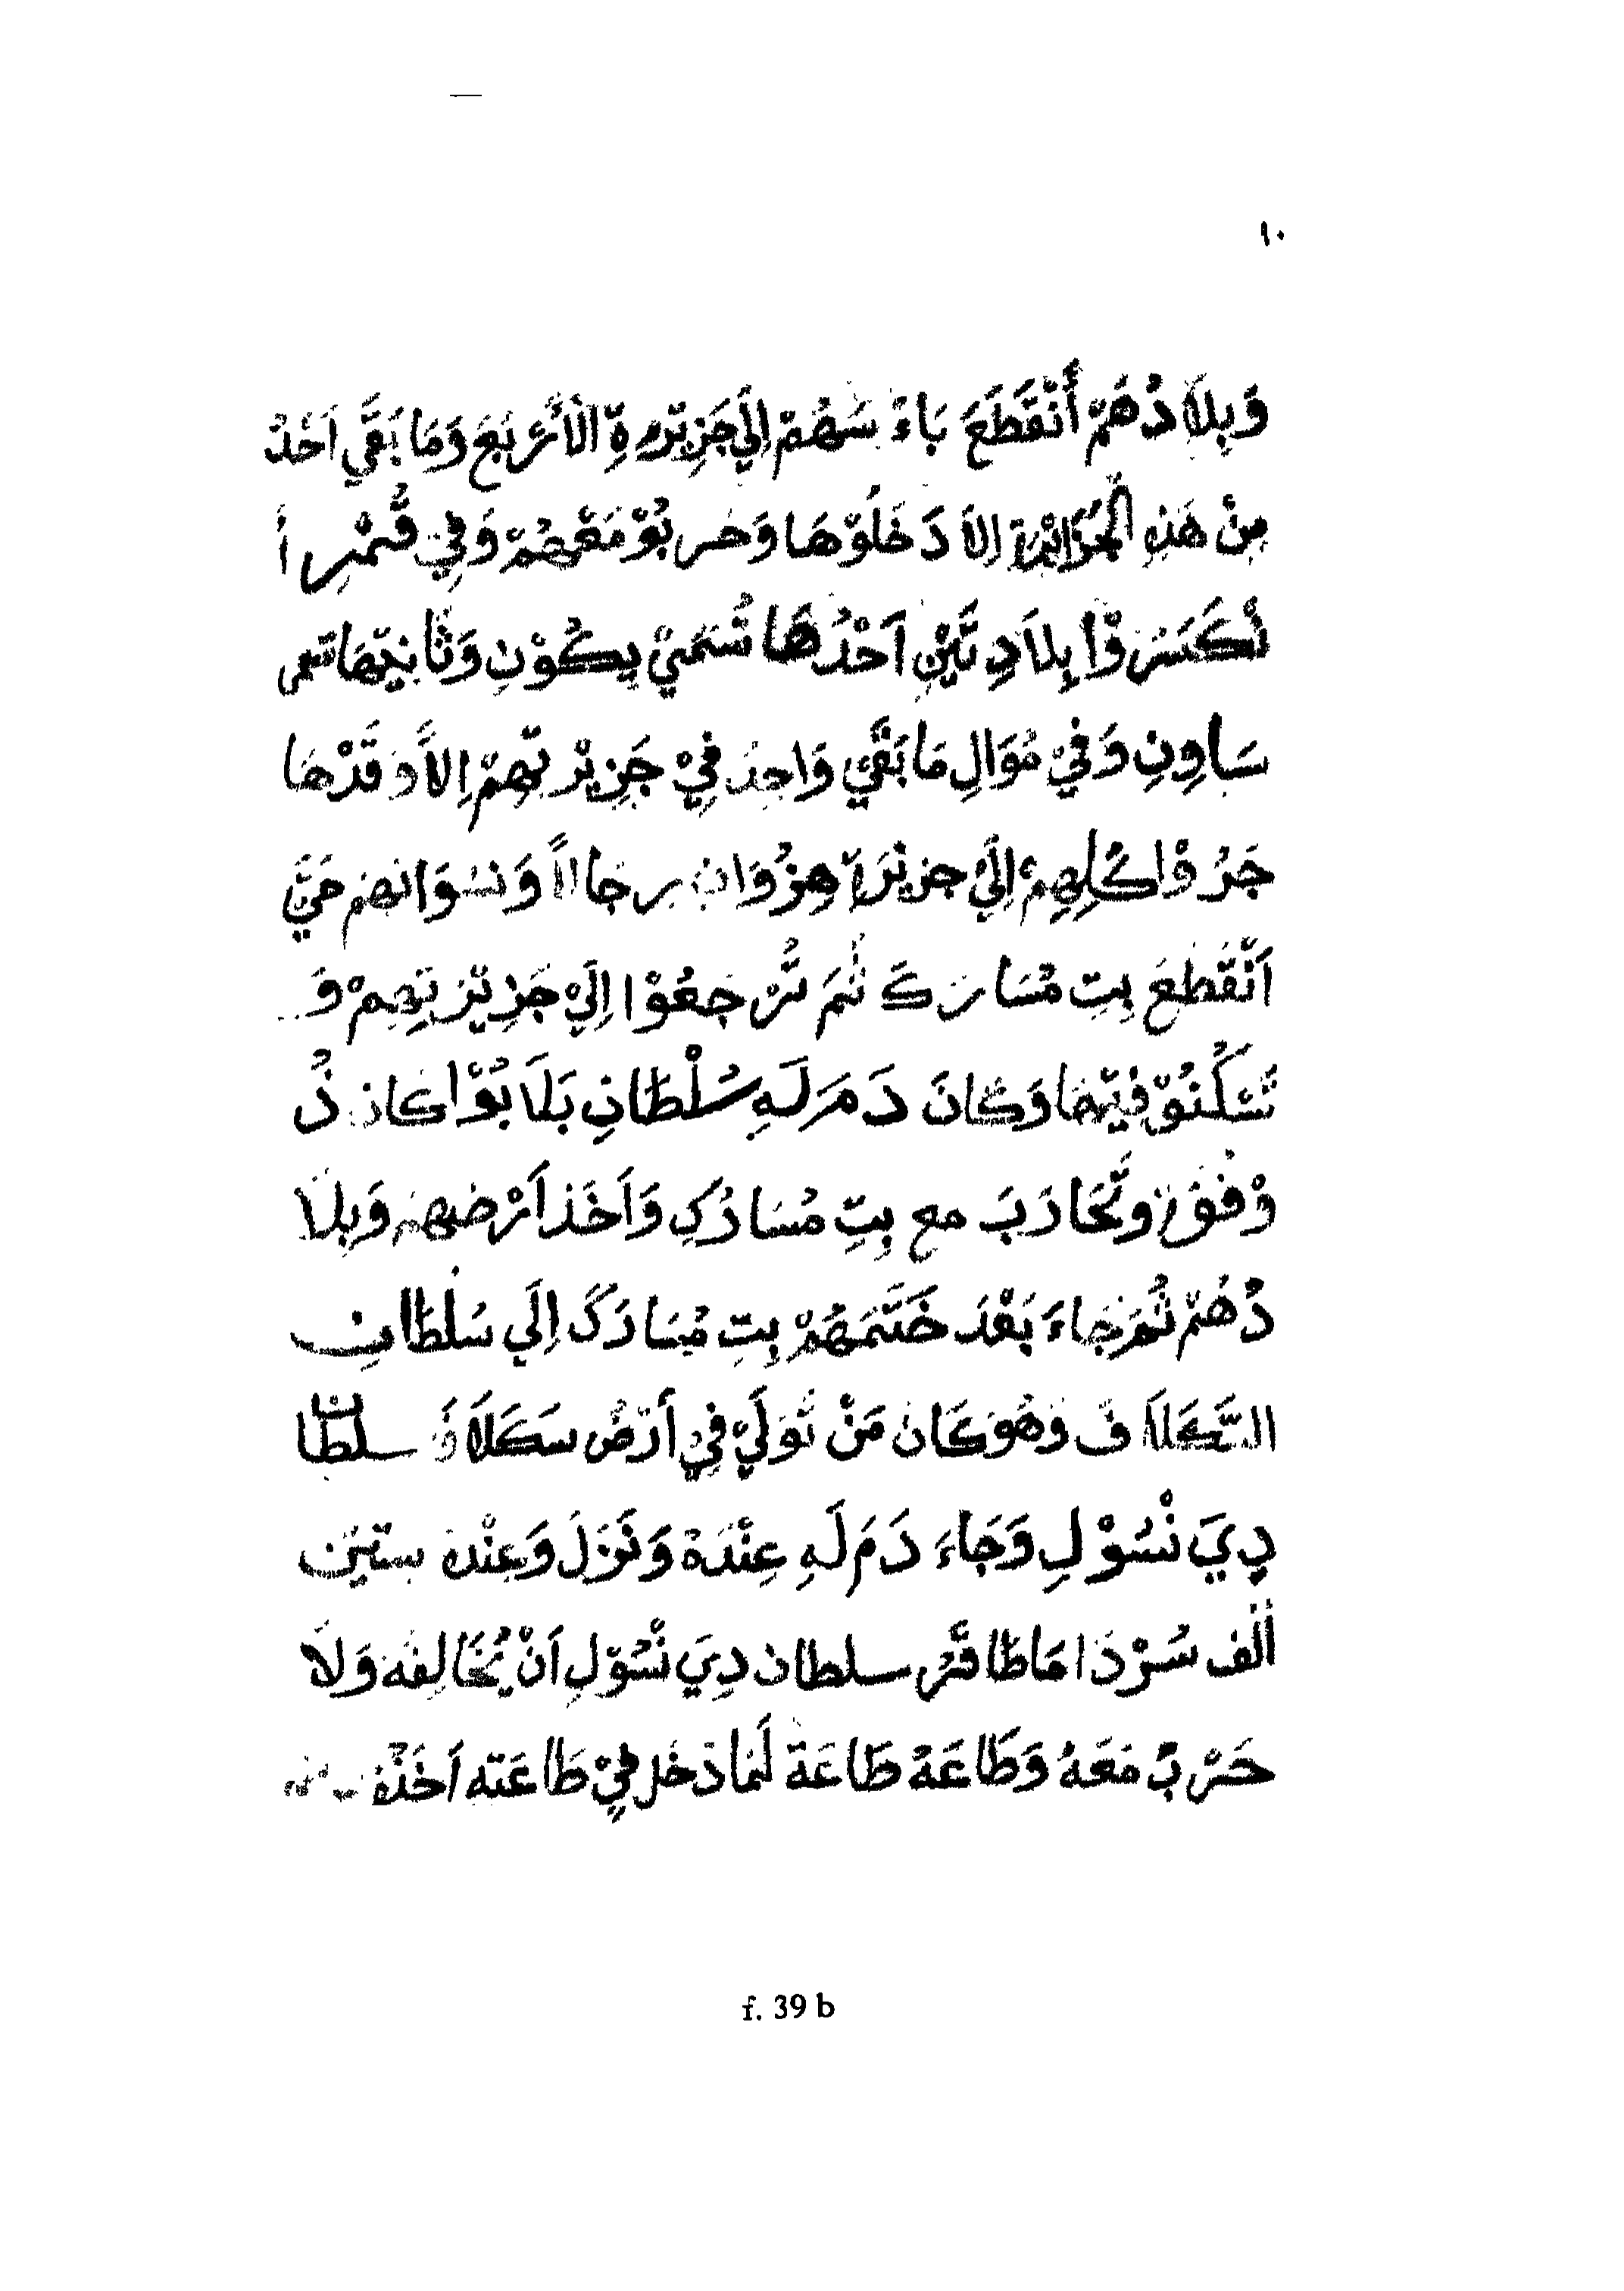 ١٠
وَبِلاَدُهُمْ أَنْقَطَعَ بَاءْ سَهُمْ اِلَيْ جَزِيْرَةِ الْأَرْبَعَ وَمَا بَقَي اَحَدُ
مِنْ هَذِهِ الْجَزَائِرَة اِلاَ دَخَلُوْهَا وَحربُوْ مَعَهُمْ وَفِيْ قُمْرِ أ
نْكَسَرُوْا بِلاَدِ تَيْنِ اَحْدُهَا تُسَمَيْ بِكُوْنِ وَثَانِيْهَا تسمى
سَاوِنِ وَفيْ مُوَالِ مَا بَقَيْ وَاحِدُ فِيْ جَزِيْرَتِهِمْ اِلاَّ وَقَدْهَا
جَرُوْا كُلِهِمْ اِلَيْ جزِيْرَة هِزُوَانِ رِجَالاً وَنسْوَانهُم حَتَيْ
اَنْقَطَعَ بِتِ مُسَارَكَ ثُمَ تَرْجَعُوْا اِلَيْ جَزِيْرَتِهِمْ وَ
تَسَكُنُوْ فِيْهَا وَكَانَ دَمَرَلَهِ سُلْطَانِ بَلَابُوْا كَانَ ذُ
وْفَنَ وتَحَادَبَ مع بِتِ مُسَارَكِ وَاَخَذ اَرْضهمْ وَبِلَا
دُهُمْ ثُمَ جَاءَ بَعْدَ خَتَمَهُمْ بِتِ مُسَارَكَ اِلَي سُلْطَانِ
السَّكَلاَفَ وَهُوَ كَانَ مَنْ تُوَلَيْ فِيْ أَرْضُ سَكَلاَفَ سلطان
دِيَ نْسُوْلِ وَجَاءَ دَمَ لَهِ عِنْدَهْ وَنَزَلَ وَعِنْدهْ ستيْن
الْف سُرْدَا مَا طَاقَهُ سلطان دِيَ نْسُوْلِ اَنْ يُخَالِفَهْ وَلاَ
حَرْبٌ مَعَهُ وَطَاعَهْ طَاعَةً لَمَا دَخَل فِيْ طَاعَته اَخَذْ
f. 39 b